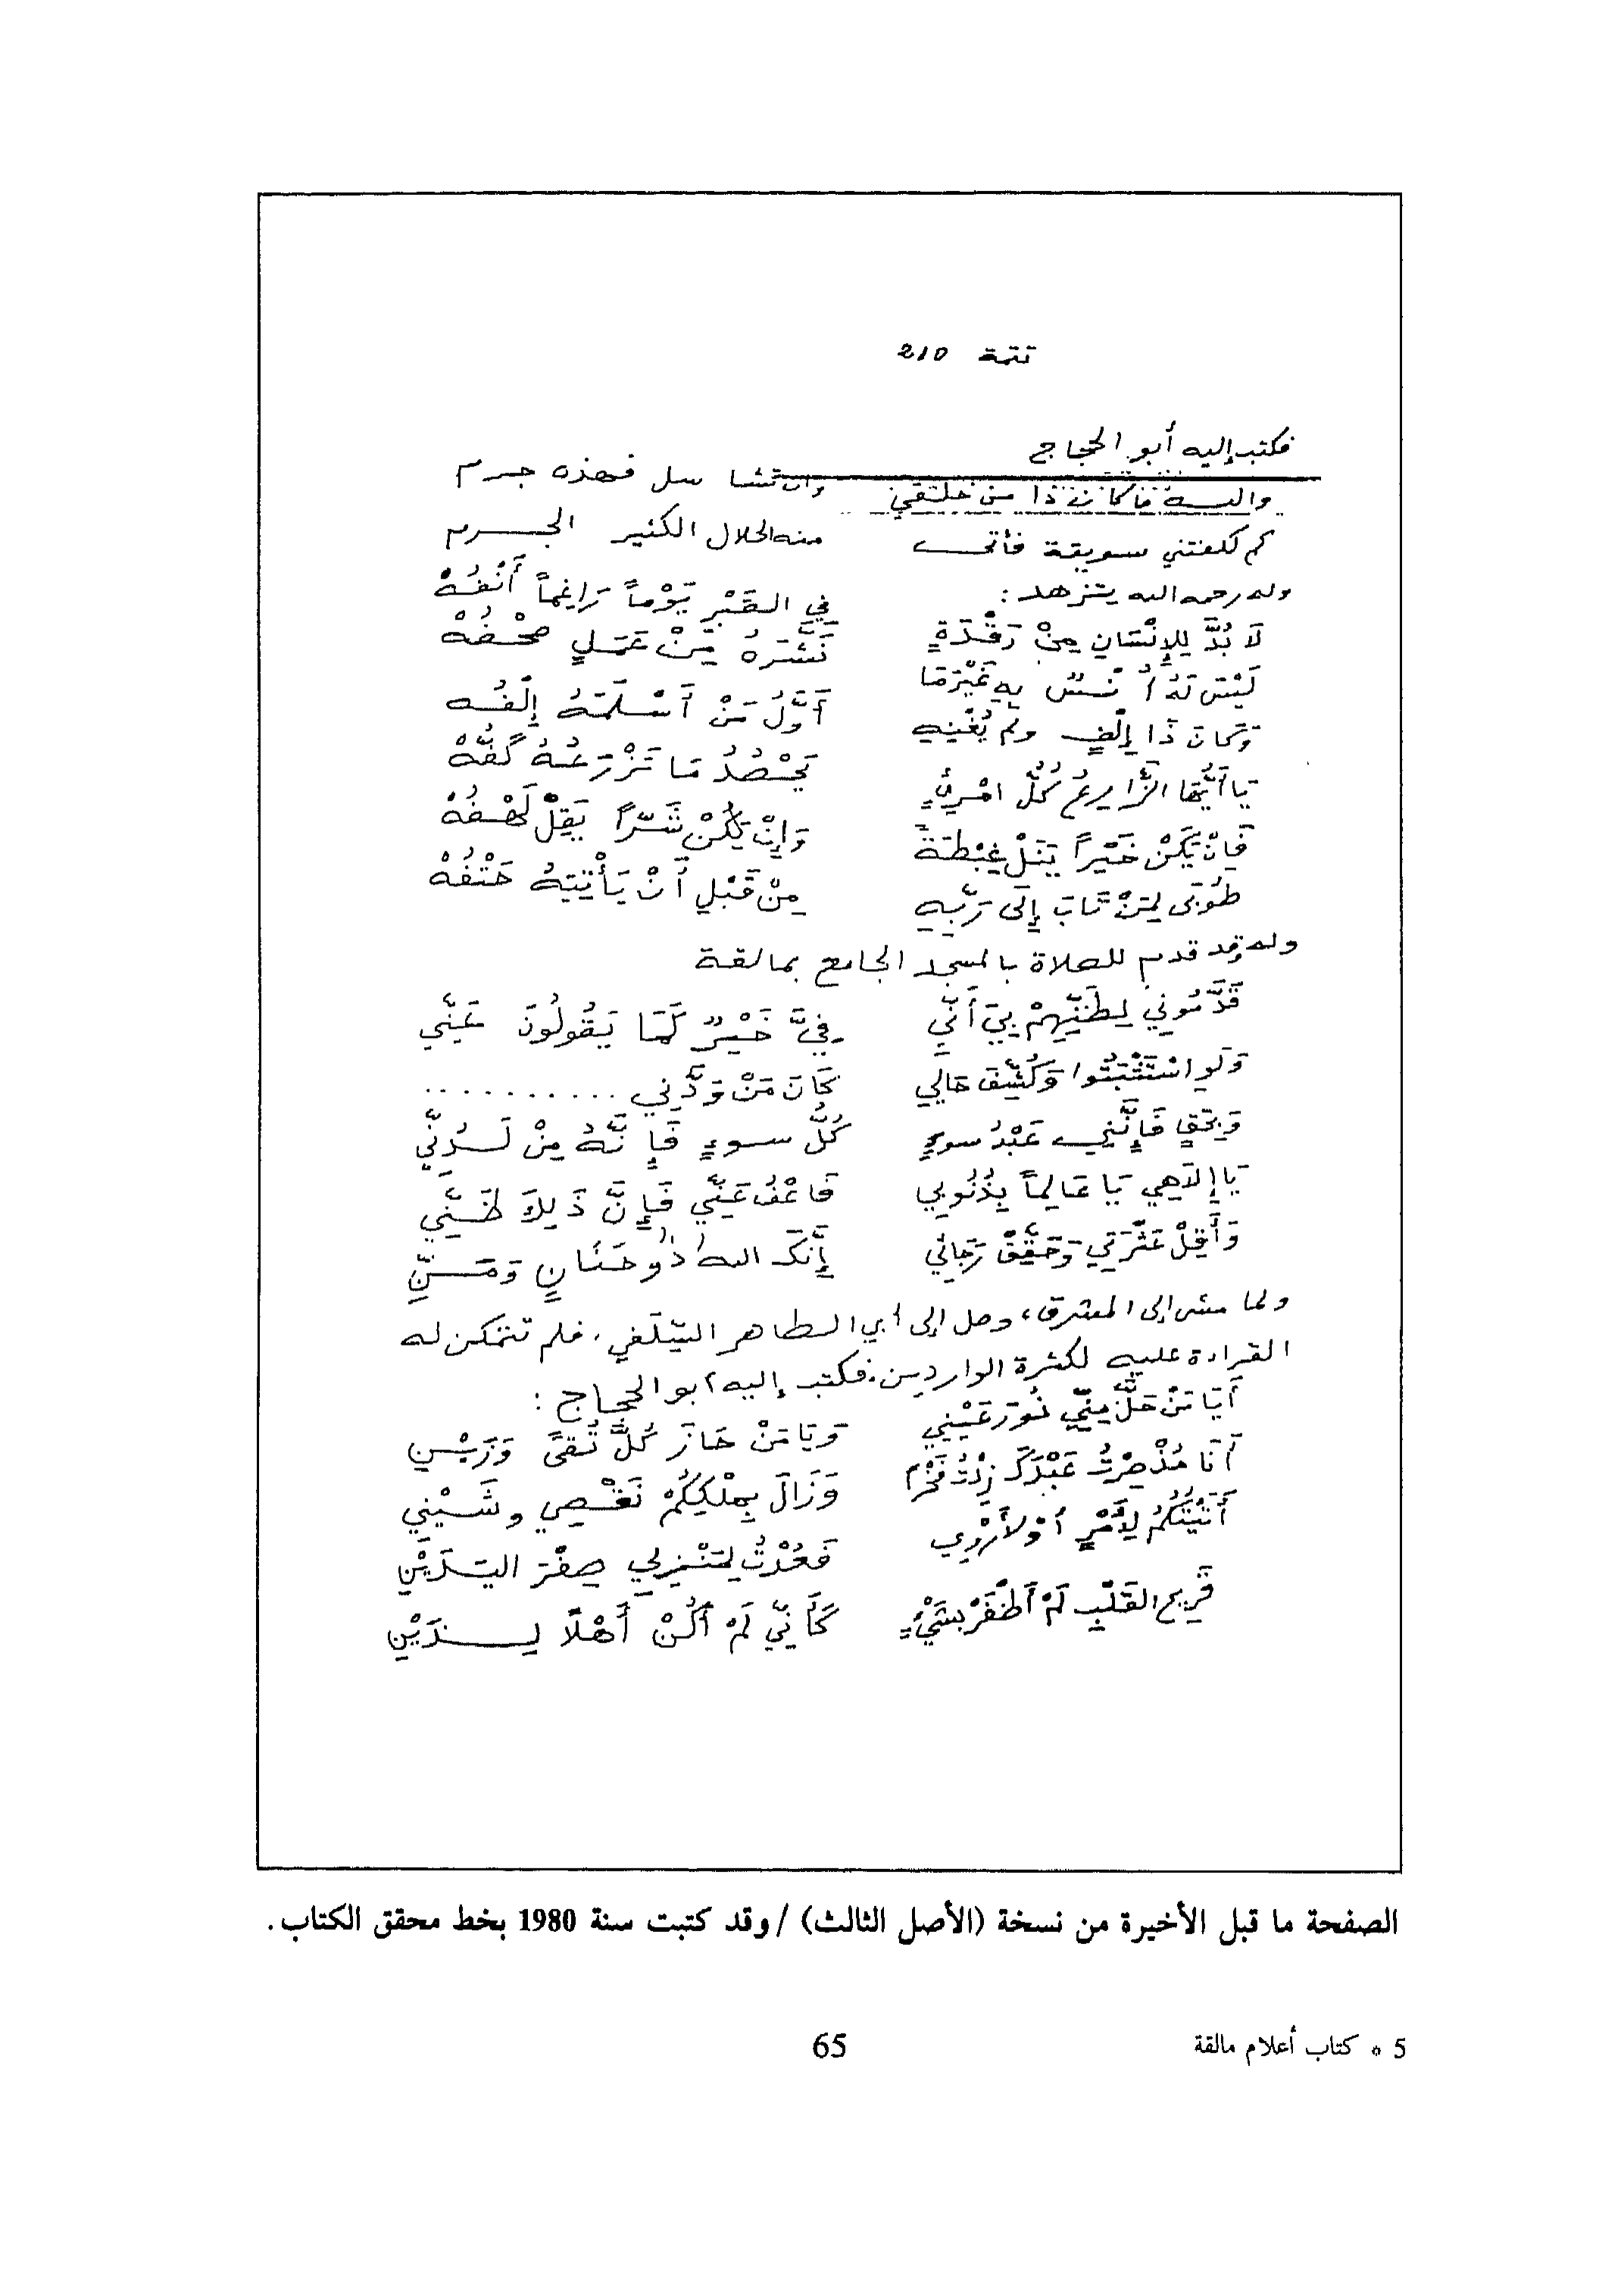 تتمة 210
فكتب إليه أبو الحجاج
والله ما كان ذا من خلقي وان تشا سل فهذه جرم
كم كلفتني سويقة فأتى منه الحلال الكثير الجرم
وله رحمه الله يتزهد :
لَا بُدَّ لِلإِنْسَانِ مِنْ رَقْدَةٍ في القَبْرِ يَوْماً رَاغِماً أَنْفُهْ
لَيْسَ لَهُ أُنْسٌ بِهِ غَيْرَمَا نَشَّرَهُ مِنْ عَمَلٍ صُحْفُهْ
وَكَانَ ذَا إِلْفٍ ولَمْ يُغْنِهِ أَوَّلُ مَنْ أَسْلَمَهُ إِلْفُه
يَا أَيُّهَا الزَّارِعُ كُلُّ امْرِئٍ يَحْصُدُ مَا تَزْرَعُهُ كَفُّهْ
فَإِنْ يَكُنْ خَيْراً يَنَلْ غِبْطَةً وَإِنْ يَكُنْ شَرّاً يَقِلْ لَهْفُهْ
طُوبَى لِمَنْ تَابَ إِلَى رَبِّهِ مِنْ قَبْلِ أَنْ يَأْتِيَهُ حَتْفُهْ
وله وقد قدم للصلاة بالمسجد الجامع بمالقة
قَدَّمُونِي لِظَنِّهِمْ بِيَ أَنِّي فِيَّ خَيْرٌ كَمَا يَقُولُونَ عَنِّي
وَلَوِ اسْتَثْبَتُوا وَكُشِّفَ حَالِي كَانَ مَنْ وَدَّنِي ..........
وَبِحَقٍ فَإِنَّنِي عَبْدُ سوءٍ كُلُّ سوءٍ فَإِنَّهُ مِنْ لَدُنِّي
يَا إِلَهِي يَا عَالِماً بِذُنُوبِي فَاعْفُ عَنِّي فَإِنَّ ذَلِكَ ظَنِّي
وَأَقِلْ عَثْرَتِي وَحَقِّقْ رَجَائي إِنَّكَ اللهُ ذُو حَنَانٍ وَمَنِّ
ولما مشى إلى المشرق، وصل إلى أبي الطاهر السِّلَفي، فلم تتمكن له
القراءة عليه لكثرة الواردين. فكتب إليه أبو الحجاج :
أَيَا مَنْ حَلَّ مِنِّي نُورَ عَيْنِي وَيَا مَنْ حَازَ كُلَّ تُقىً وَزَيْنِ
أَنَا مُذْ صِرْتُ عَبْدَكَ زِدْتُ فَخْراً وَزَالَ بِمِلْكِكُمْ نَقْصِي وشَيْنِي
أَتَيْتُكُمُ لِأَمْرٍ أوْ لأَرْوِي فَعُدْتُ لِمَنْزِلِي صِفْرَ اليَدَيْنِ
قَرِيحَ القَلْبِ لَمْ أَظْفَرْ بِشَيْءٍ كَأَنِّي لَمْ أَكُنْ أَهْلًا لِـذَيْنِ
الصفحة ما قبل الأخيرة من نسخة (الأصل الثالث) / وقد كتبت سنة 1980 بخط محقق الكتاب.
5 * كتاب أعلام مالقة
65